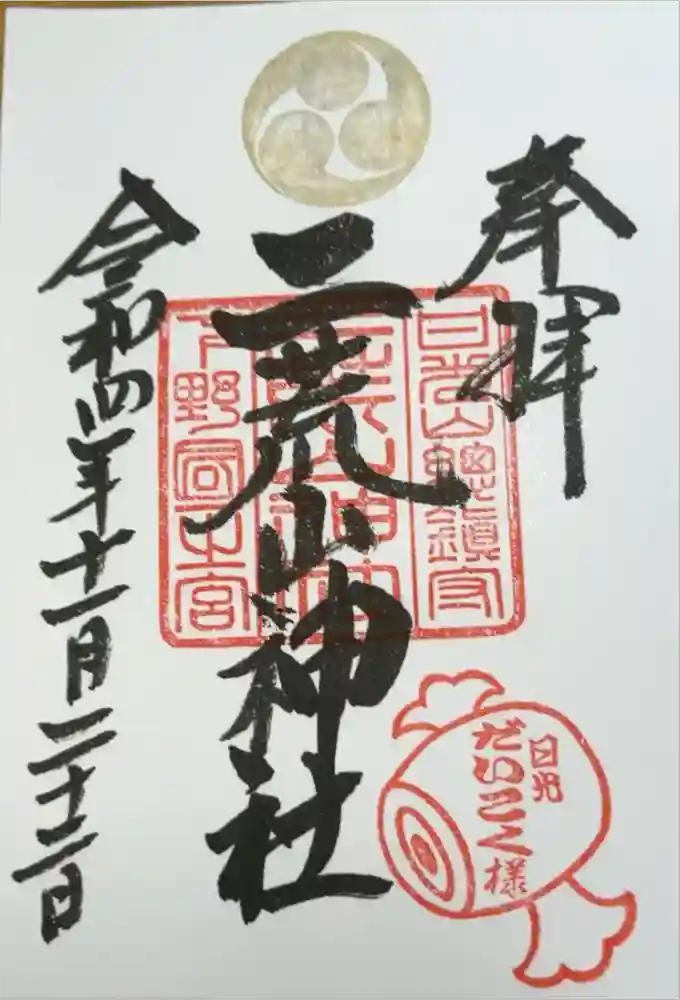 奉拝
日光山總鎮守
二荒山神社
下野國一之宮
令和四年十一月二十二日
日光
だいこく様